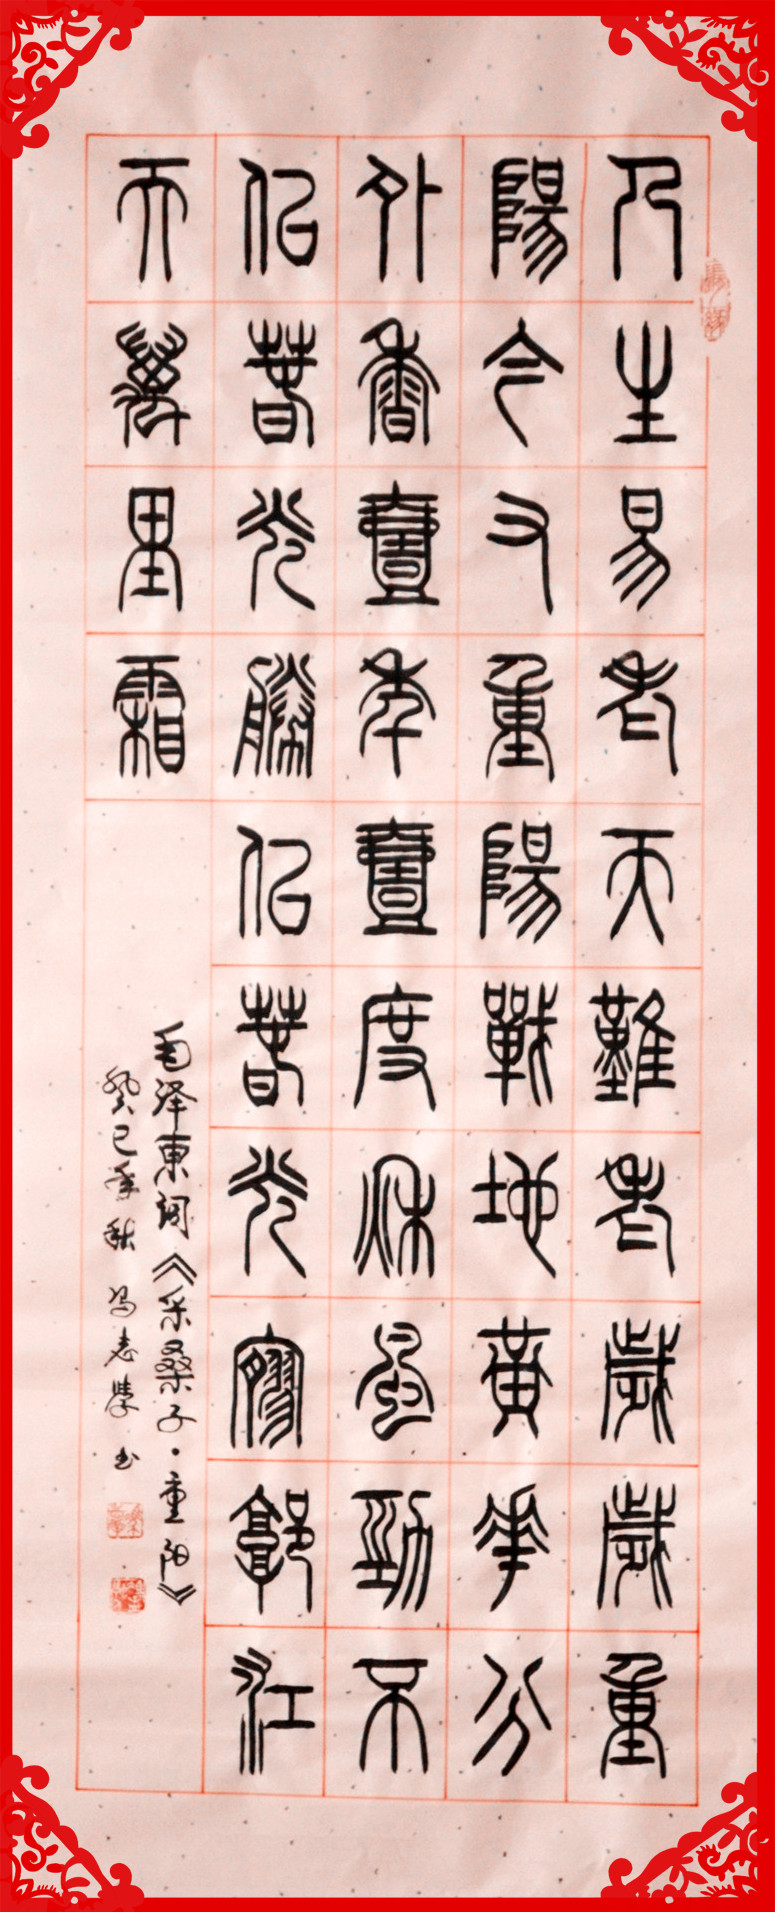 人生易老天難老歲歲重
陽今又重陽戰地黃花分
外香壹年壹度秋風勁不
似春光勝似春光寥郭江
天萬里霜
毛泽東词《采桑子·重阳》
癸巳年秋 冯志學 书